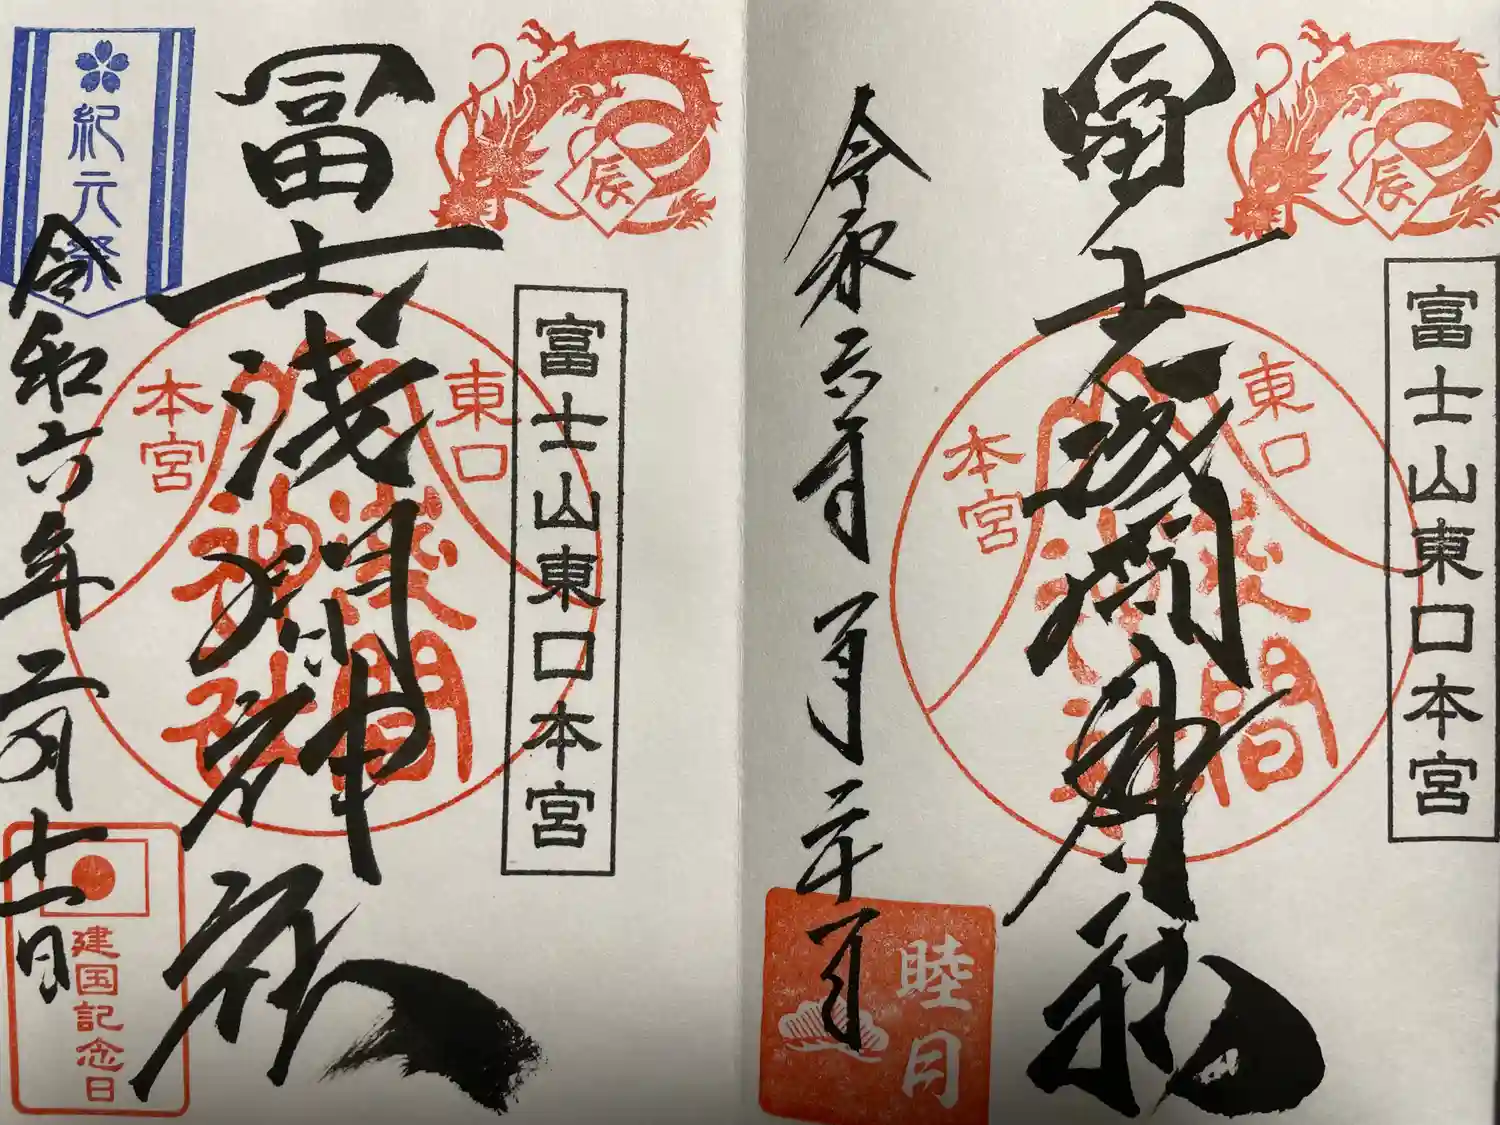 辰
富士山東口本宮
冨士浅間神社
東口
本宮
浅間
神社
令和六年一月二十一日
睦月
辰
富士山東口本宮
冨士浅間神社
東口
本宮
浅間
神社
紀元祭
令和六年二月十一日
建国記念日